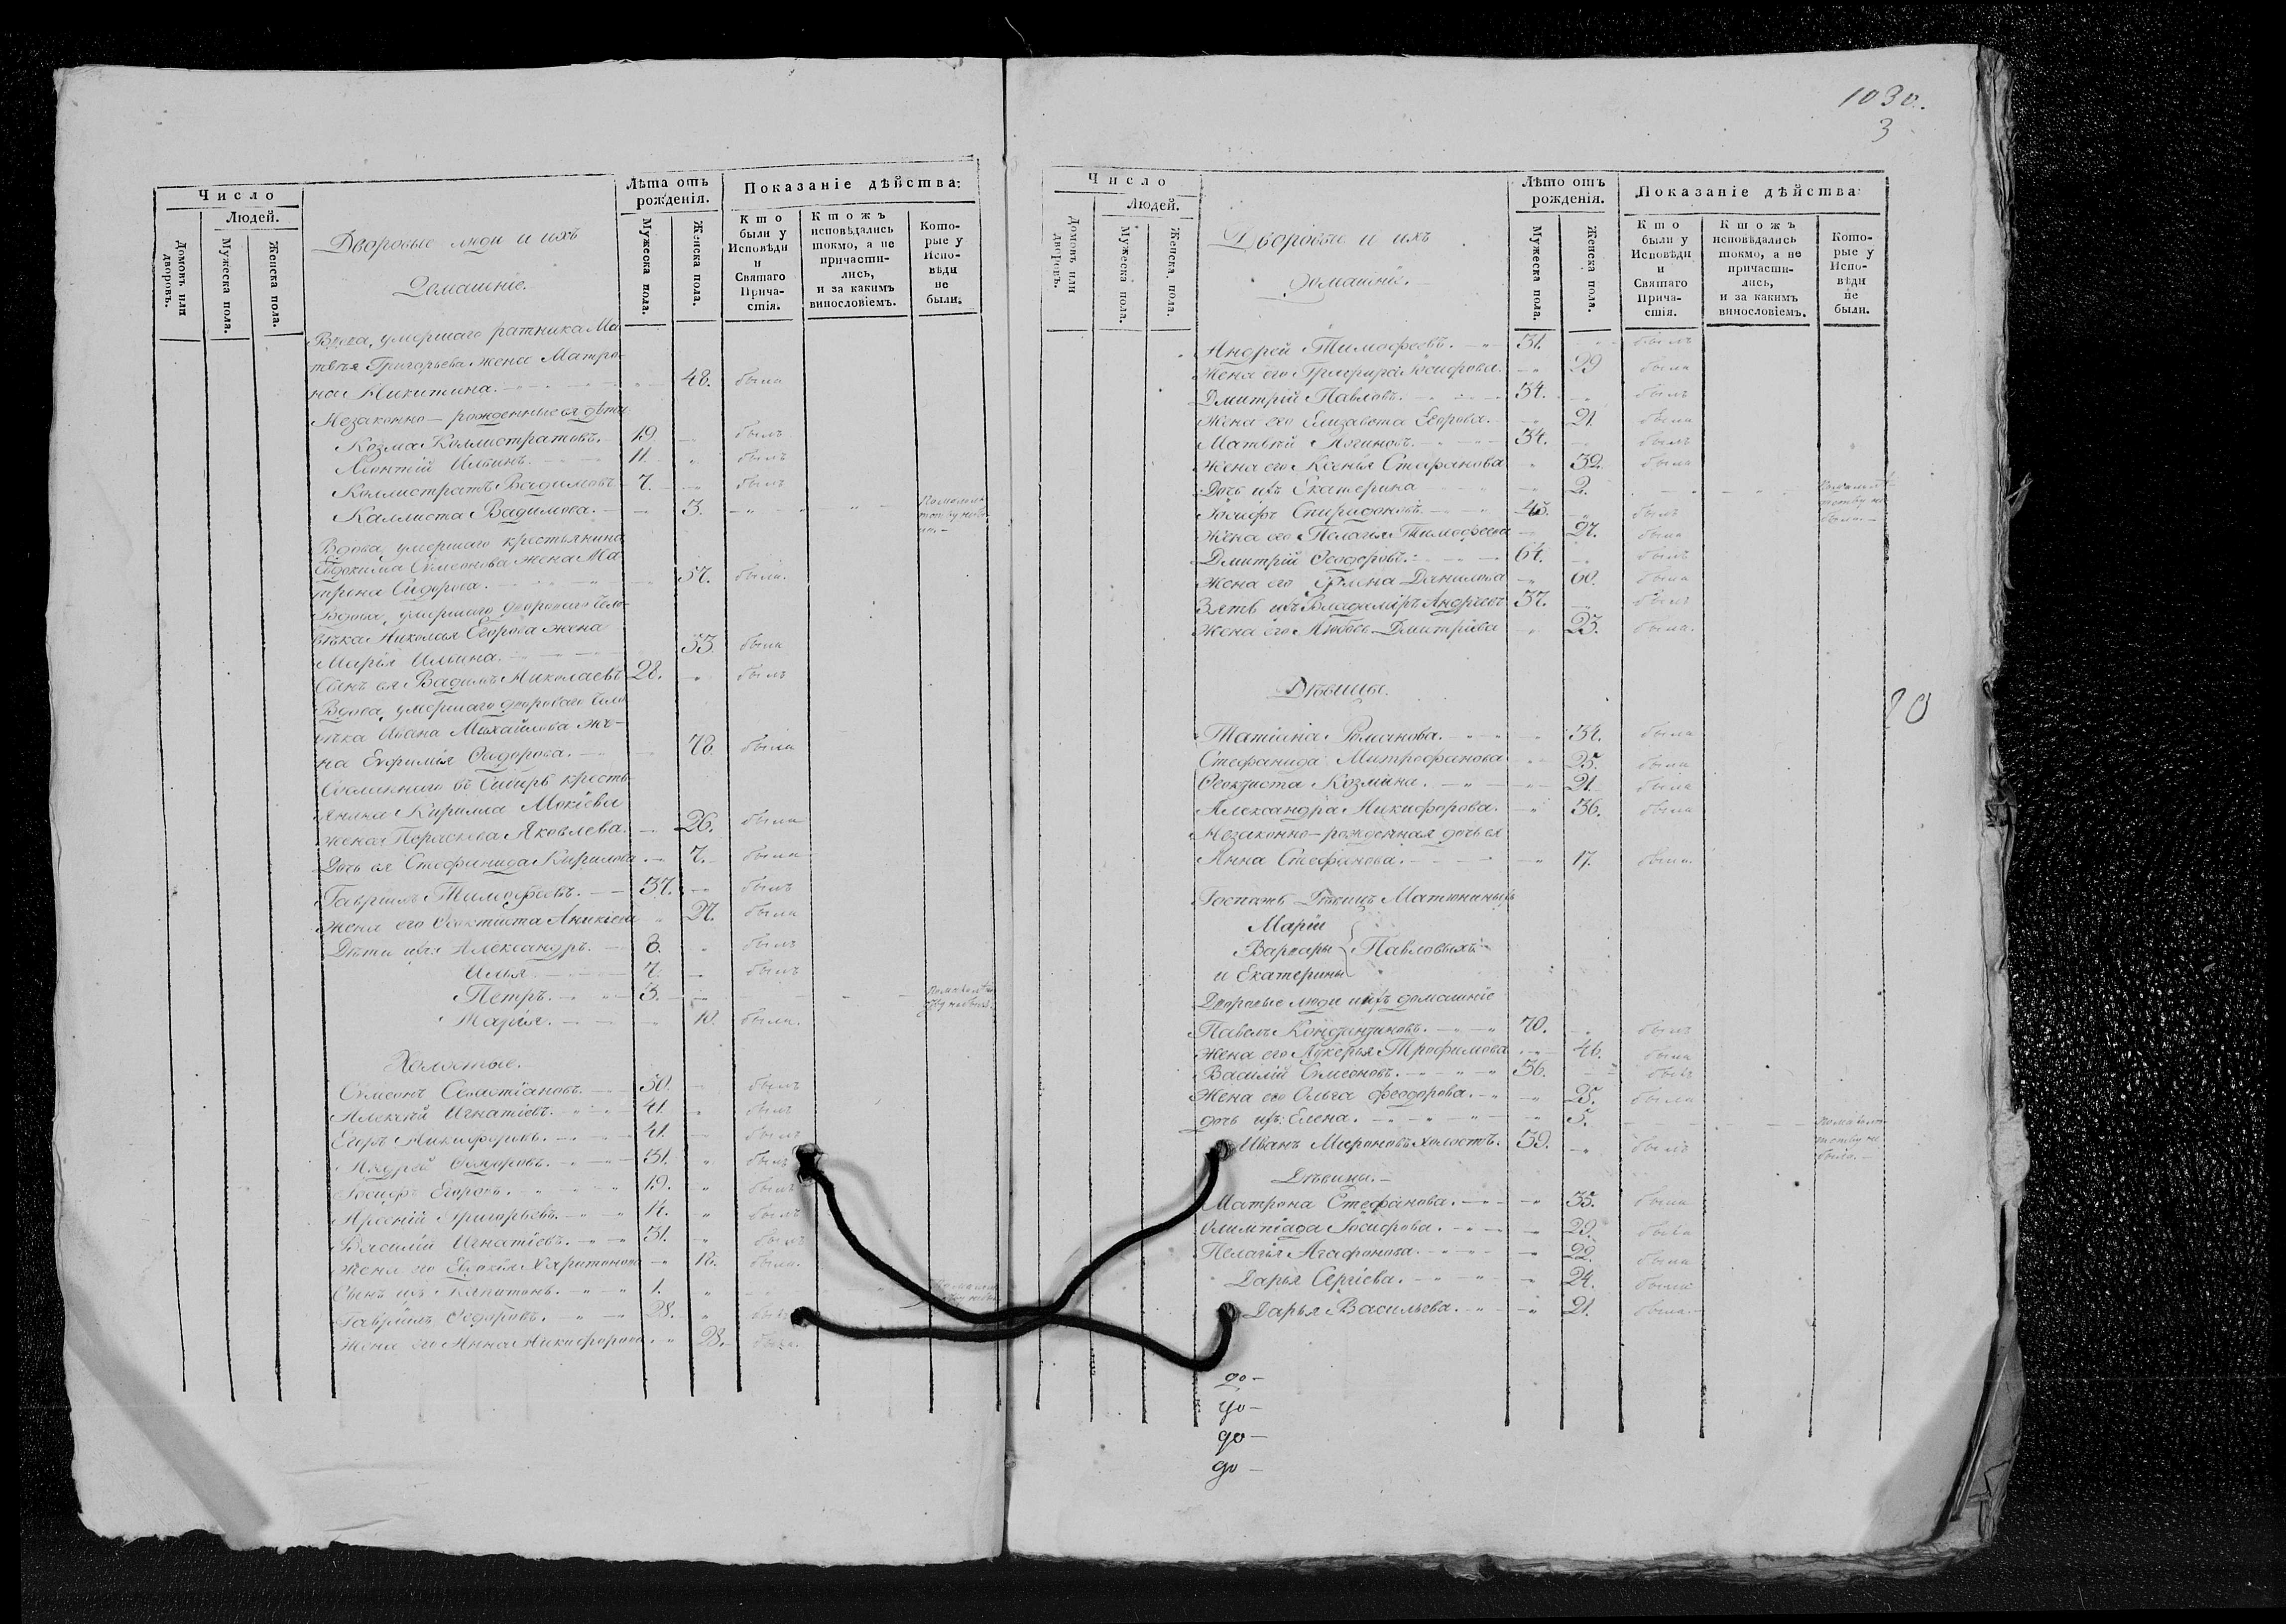 Число
Людей.
Домовъ или дворовъ.
Мужеска пола.
Женска пола.
Дворовые люди и ихъ
Домашніе.
Лѣта отъ рожденія.
Мужеска пола.
Женска пола.
Показаніе дѣйства:
Кто были у Исповѣди и Святаго Причастія.
Ктожъ исповѣдались токмо, а не причастились, и за какимъ винословіемъ.
Которые у Исповѣди не были.
Вдова, умершаго ратника Ма
твѣя Григорьева жена Матро-
на Никитина. 48. была
Незаконно-рожденные ея дѣти
Козма Каллистратовъ. 19. былъ
Леонтій Ильинъ. 11. былъ
Каллистратъ Вадимовъ 7. былъ
Каллиста Вадимова. 3.
Вдова, умершаго крестьянина
Евдокима Симеонова жена Ма
трона Сидорова. 57. была.
Вдова, умершаго двороваго чело-
вѣка Николая Егорова жена
Марья Ильина. 53. была
Сынъ ея Вадимъ Николаевъ 28. былъ
Вдова, умершаго двороваго чело
вѣка Ивана Михайлова же-
на Евфимія Сидорова. 78. была
Сосланнаго въ Сибирь кресть-
янина Кирилла Мокіева
жена Параскева Яковлева. 26. была
Дочь ея Стефанида Кирилова. 7. была
Гавріилъ Тимофеевъ. 37. былъ
Жена его Феоктиста Аникіева 27. была
Дѣти ихъ Александръ. 8. былъ
Илья 7. былъ
Петръ. 3.
Марія. 10. была.
Холостые.
Симеонъ Севастіановъ. 50. былъ
Алексѣй Игнатіевъ. 41. былъ
Егоръ Никифоровъ. 41. былъ
Андрей Сидоровъ. 31. былъ
Іосифъ Егоровъ. 19. былъ
Арсеній Григорьевъ. 14. былъ
Василій Игнатіевъ. 31. былъ
Жена его Евдокія Харитонова 18. была.
Сынъ ихъ Капитонъ. 1.
Гавріилъ Сидоровъ. 28. былъ
Жена его Анна Никифорова. 28. была.
1030.
3
Число
Людей.
Домовъ или дворовъ.
Мужеска пола.
Женска пола.
Дворовые и ихъ
Домашніе.
Лѣто отъ рожденія.
Мужеска пола.
Женска пола.
Показаніе дѣйства
Кто были у Исповѣди и Святаго Причастія.
Ктожъ исповѣдались токмо, а не причастились, и за какимъ винословіемъ.
Которые у Исповѣди не были.
Андрей Тимофеевъ. 31. былъ
Жена его Іосифова. 29 была
Дмитрій Павловъ. 34. былъ
Жена его Елизавета Егорова. 21. была
Матвѣй Логиновъ. 34. былъ
Жена его Ксенья Стефанова 32. была
Дочь ихъ Екатерина 2.
Іосифъ Спиридоновъ. 43. былъ
Жена его Пелагія Тимофеева 27. была
Дмитрій Феодоровъ. 64. былъ
Жена его Данилова 60. была
Зять ихъ Владиміръ Андреевъ 37. былъ
Жена его Любовь Дмитріева 23. была.
Дѣвицы.
20
Татіана Романова. 34. была
Стефанида Митрофанова 25. была
Феоктиста Козмина. 21. была
Александра Никифорова. 36. была
Незаконно-рожденная дочь ея
Анна Стефанова. 17. была.
Госпожъ Дѣвицъ Матюниныхъ
Маріи
Варвары Павловыхъ
и Екатерины
Дворовые люди и ихъ домашніе
Павелъ Константиновъ. 70. былъ
Жена его Лукерья Трофимова 46. была
Василій Симеоновъ. 36. былъ
Жена его Ольга Феодорова. 25. была
дочь ихъ: Елена. 5.
Иванъ Мироновъ холостъ. 39. былъ
Дѣвицы.
Матрона Стефанова. 35. была
Олимпіада Іосифова. 29. была
Пелагія Агафонова. 22. была
Дарья Сергіева. 24. была
Дарья Васильева. 21. была.
до-
до-
до-
до-